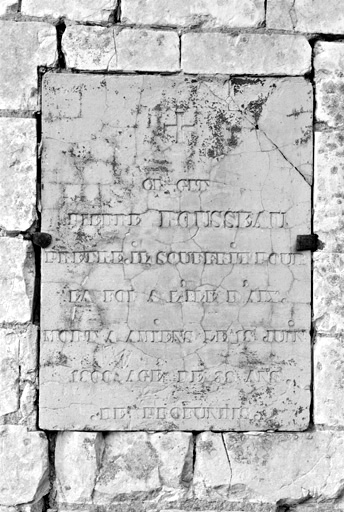 CY GIT
PIERRE ROUSSEAU
PRETRE IL SOUFFRIT POUR
LA FOI A L'ILE D'AIX.
MORT A AMIENS LE JUIN
AGE DE ANS
DE PROFUNDIS